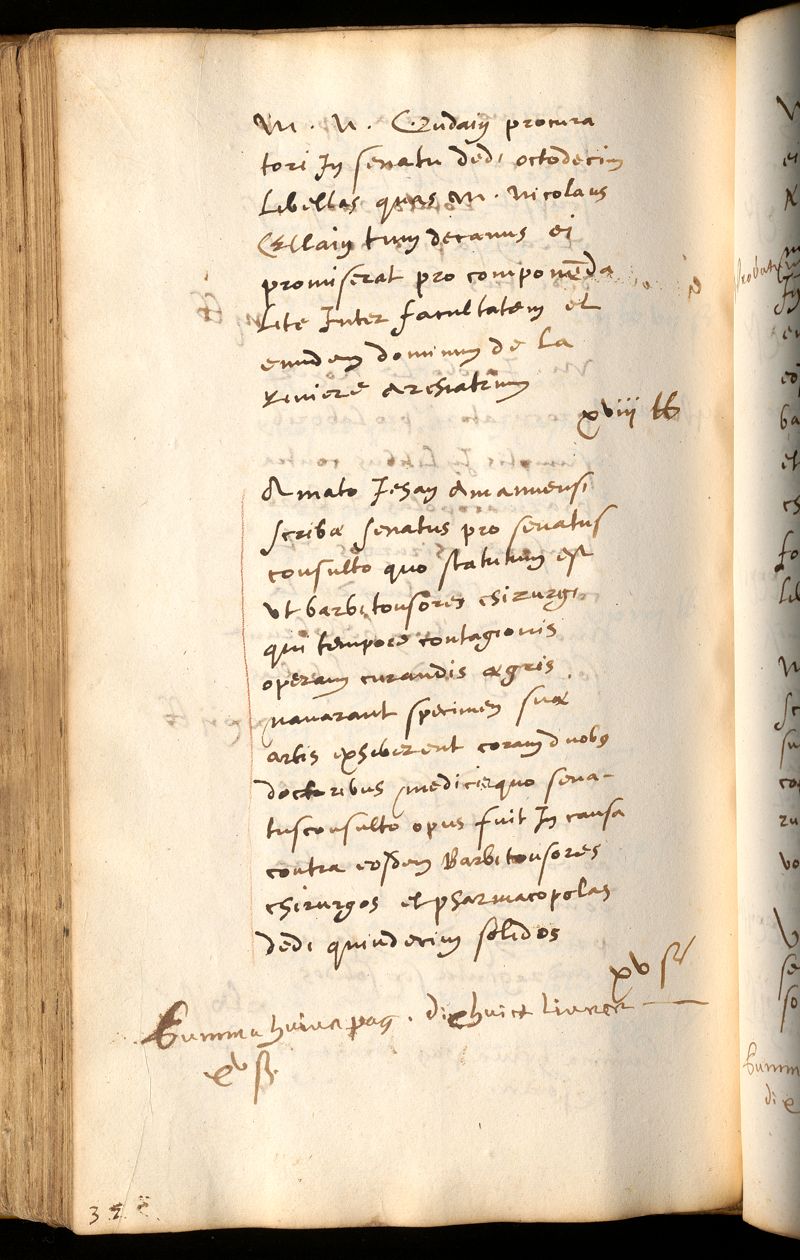 M. N. Gudaiy procura
tori In senatu dedi octodecim
Libellas quas M. Nicolaus
Ellain tum decanus ei
promiserat pro componenda
Lite Inter facultatem et
eumdem dominum de la
Riviere Archiatrum
xviij lb
Amato Jehan Amanuensi
scribæ senatus pro senatus
consulto quo statutum est
vt barbitonsores chirurgi
qui tempore contagionis
operam curandis ægris
navarant specimen suæ
artis exhiberent coram duobus
doctoribus medicis quo sena-
tusconsulto opus fuit In causa
contra eosdem Barbitonsores
chirurgos et pharmacopolas
dedi quindecim solidos
xv s
Summa huius pag. dixhuict livres
xv s.